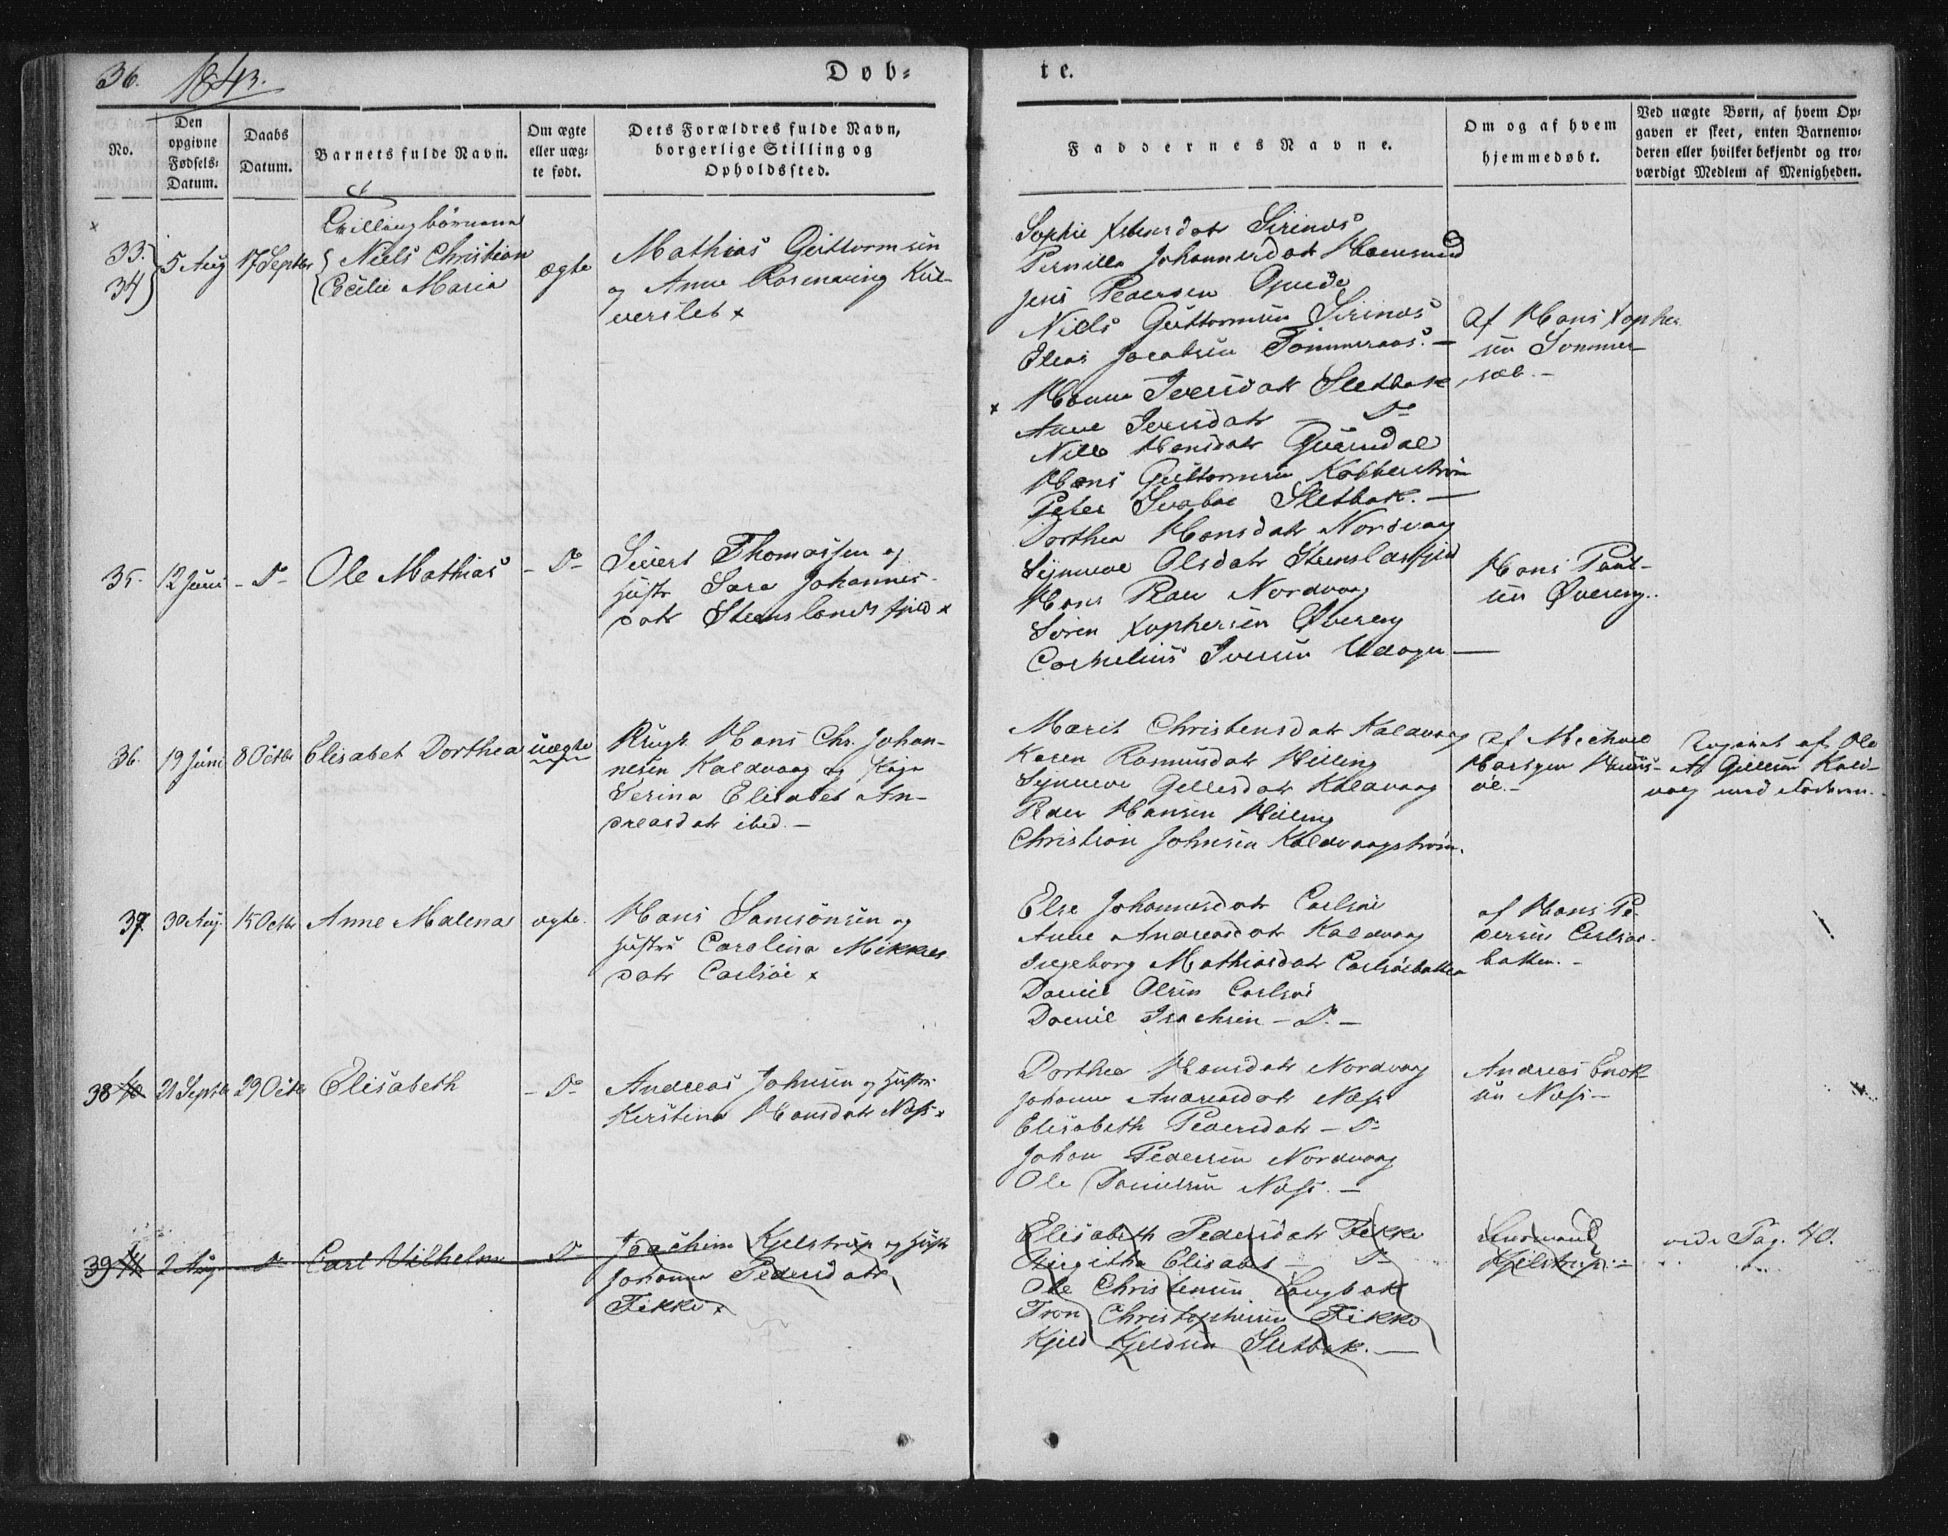 36. 1843. Døb-
te.
No.
Den opgivne Fødsels-Datum.
Daabs Datum.
Barnets fulde Navn.
Om ægte eller uægte født.
Dets Forældres fulde Navn, borgerlige Stilling og Opholdssted.
Faddernes Navne.
Om og af hvem hjemmedøbt.
Ved uægte Børn, af hvem Opgaven er skeet, enten Barnemoderen eller hvilket bekjendt og troværdigt Medlem af Menigheden.
33. 34
5 Aug
17 Septbr
Tvillingbørnene
Niels Christian
Cecilie Maria
ægte
Mathias Guttormsen
og Anne Rosenving Kul-
verslet x
Sophie Xstensdatr Sirinæs
Pernilla Johannesdatr Hamsund
Jens Pedersen
Niels Guttormsen Sirinæs
Elias Jacobsen Tømmeraas. —
x Hanna Iversdatr Sletbak
Anne Iversdatr — Do
Nille Hansdatr
Hans Guttormsen Kobberstrøm
Peter Svaboe Sletbak. —
af Hans Xopher-
sen Sommer-
sæt. —
35.
12 Juni
- Do -
Ole Mathias
- Do -
Sivert Thomassen og
Hustr Sara Johannes-
datr Steenslandsfjeld x
Dorthea Hansdatr Nordvaag
Synneve Olsdatr Steenslandsfjeld
Hans Peder Nordvaag
Søren Xophersen Øvereng
Cornelius Iversen —
Hans Paul-
sen Øvereng.
36.
19 Juni
8 Octbr
Elisabet Dorthea
uægte
Ungk. Hans Chr. Johan-
nesen Kaldvaag og Pige
Serina Elisabet An-
dreasdatr ibid. —
Marit Christensdatr Kaldvaag
Karen Rasmusdatr Helling
Synneve Gellesdatr Kaldvaag
Peder Hansen Helling
Christian Johnsen Kaldvaagstrøm.
af Michael
øe. —
af Ole
A. Gellesen Kald-
vaag med
37
30 Aug.
15 Octbr
Anne Malena
ægte.
Hans Samsonsen og
Hustru Carolina Mikkels
datr Carlsøe x
Else Johannesdatr Carlsøe
Anne Andreasdatr Kaldvaag
Ingeborg Mathiasdatr Carlsøebatten
Daniel Olsen Carlsøe
Daniel Isachsen — Do. —
af Hans Pe-
dersen Carlsøe-
batten. —
38
21 Septbr
29 Octbr
Elisabeth
- Do -
Andreas Johnsen og Hustru
Kerstina Hansdatr Næss x
Dorthea Hansdatr Nordvaag
Johanna Andreasdatr Næss
Elisabeth Pedersdatr — Do
Johan Pedersen Nordvaag
Ole Danielsen Næss. —
Andreas Enok-
sen Næss —
39
2 Aug
Do
Carl Vilhelm
Do
Joachim Kjelstrup og Hustr
Johanna Pedersdatr
Fikke x
Elisabeth Pedersdatr Fikke
Birgitha Elisabet — Do
Ole Christensen Langbak
Tron Christophersen Fikke
Kjeld Kjeldsen Sletbak. —
Lensmand
Kjelstrup. —
vide Pag. 40.